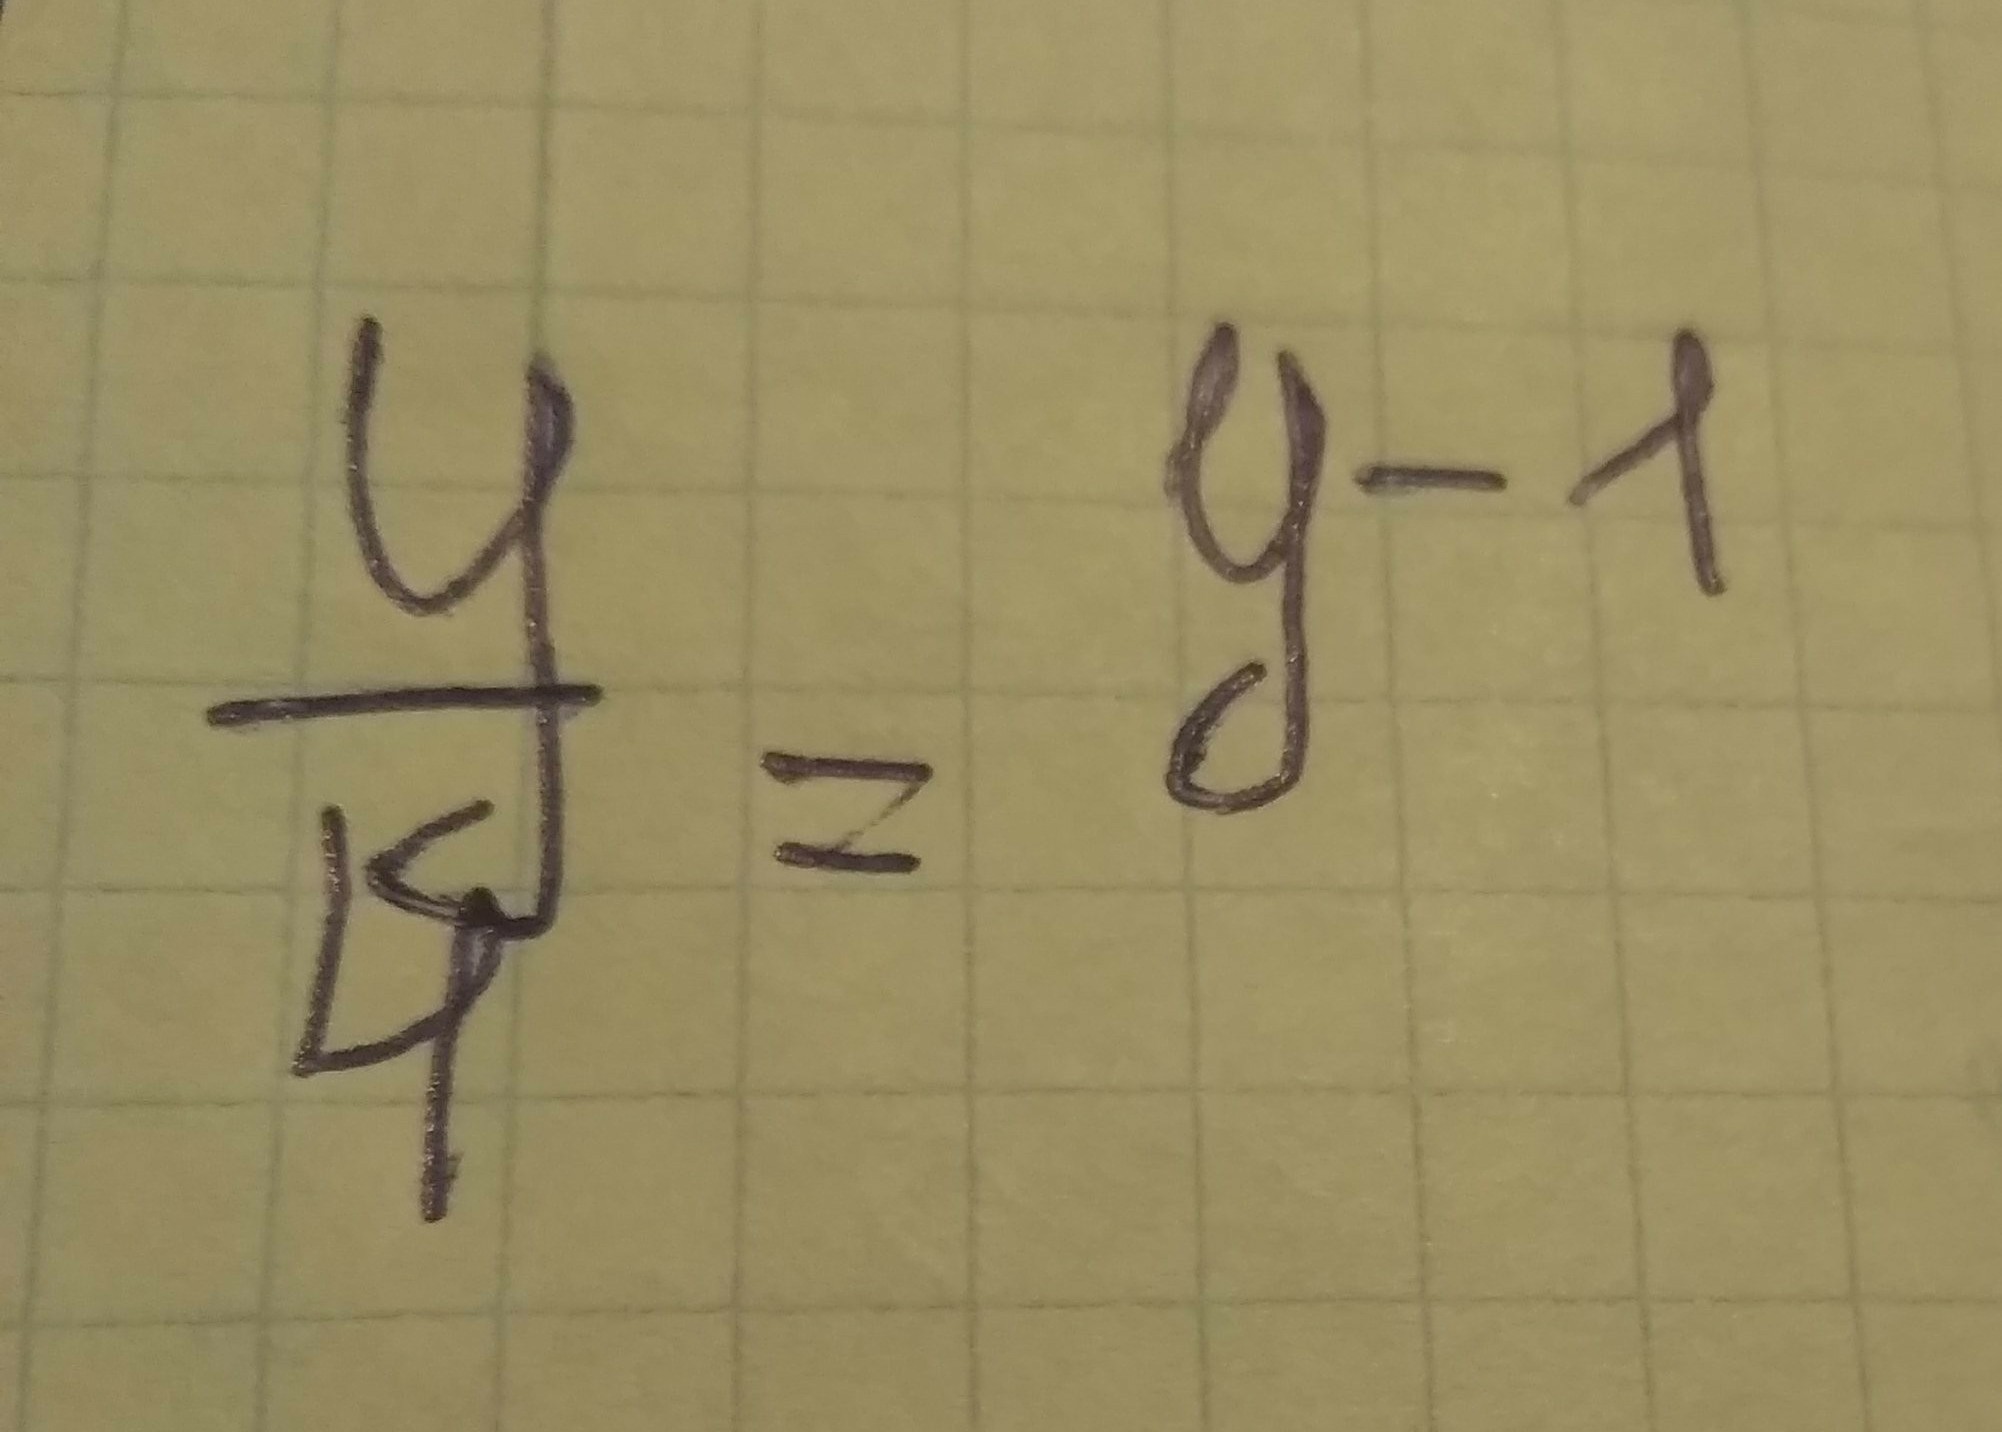 y/4 = y - 1